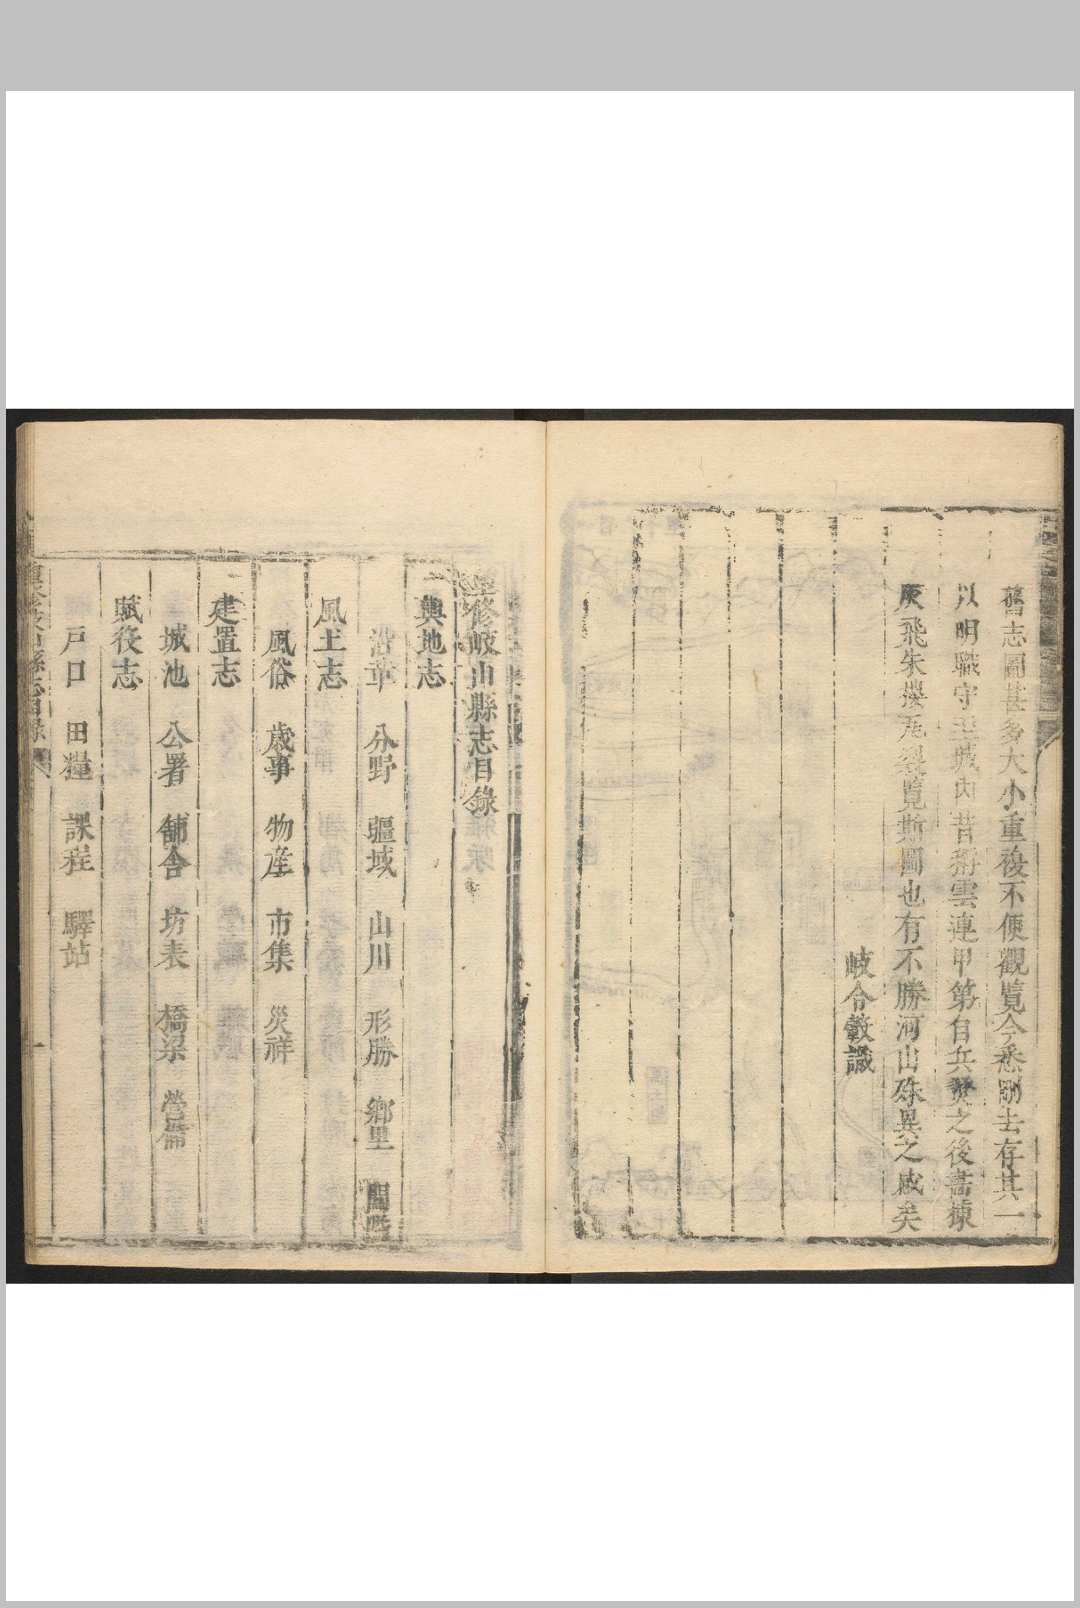 舊志圖甚多大小重複不便觀覽今悉刪去存其一
以明職守至城内昔稱雲連甲第自兵燹之後畵棟
灰飛朱甍瓦裂覽斯圖也有不勝河山殊異之感矣
岐令轂識
重修岐山縣志目錄
輿地志
沿革 分野 疆域 山川 形勝 鄉里
風土志
風俗 歲事 物産 市集 災祥
建置志
城池 公署 舖舎 坊表 橋梁 營備
賦役志
戸口 田糧 課程 驛站
縣志目錄
一